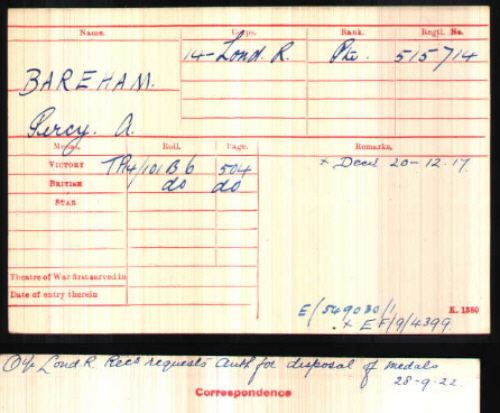 Name. Corps. Rank. Regtl. No.
14-Lond. R. Pte. 515714
BAREHAM.
Percy. A.
Medal. Roll. Page. Remarks.
VICTORY TP14/101 B 6 504 x Decd 20-12.17.
BRITISH do do
STAR
Theatre of War first served in
Date of entry therein
K. 1380
E/549030/1
x EF/9/4399.
O i/c Lond. R. Recs requests auth for disposal of medals
28-9-22.
Correspondence